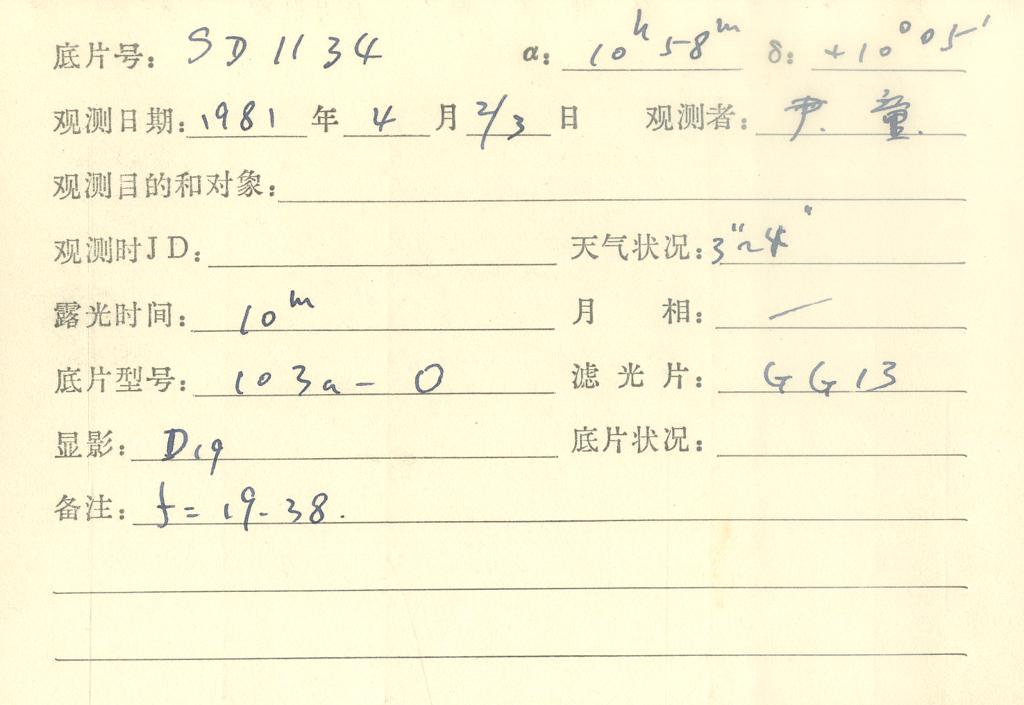 底片号: SD 1134 α: 10ʰ 58ᵐ δ: +10° 05′
观测日期: 1981 年 4 月 2/3 日 观测者: 尹. 童.
观测目的和对象:
观测时JD: 天气状况: 3″~4″
露光时间: 10ᵐ 月 相: —
底片型号: 103a-O 滤光片: GG13
显影: D19 底片状况:
备注: f=19-38.